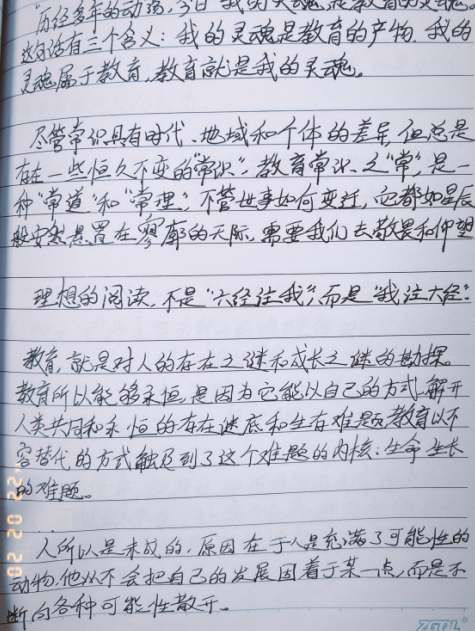 历经多年的动荡，今日"我的灵魂是教育的灵魂。"
这句话有三个含义：我的灵魂是教育的产物，我的
灵魂属于教育，教育就是我的灵魂。
尽管常识具有时代、地域和个体的差异，但总是
存在一些恒久不变的"常识"，教育常识之"常"，是一
种"常道"和"常理"，不管世事如何变迁，它都如星辰
般安然悬置在寥廓的天际，需要我们去敬畏和仰望
理想的阅读，不是"六经注我"，而是"我注六经"
教育，就是对人的存在之谜和成长之谜的勘探。
教育所以能够永恒，是因为它能以自己的方式，解开
人类共同和永恒的存在谜底和生存难题，教育以不
容替代的方式触及到了这个难题的内核：生命生长
的难题。
人所以是未成的，原因在于人是充满了可能性的
动物，他从不会把自己的发展固着于某一点，而是不
断向各种可能性敞开。